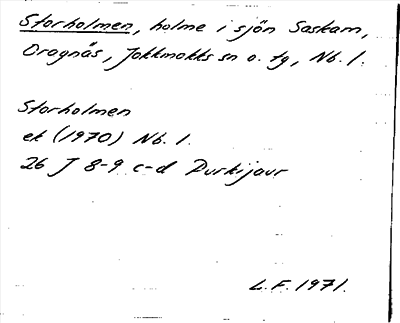 Storholmen, holme i sjön Saskam,
Oragnäs, Jokkmokks sn o. tg, Nb. l.
Storholmen
ek (1970) Nb. l.
26 J 8-9 c-d Purkijaur
L.F. 1971.